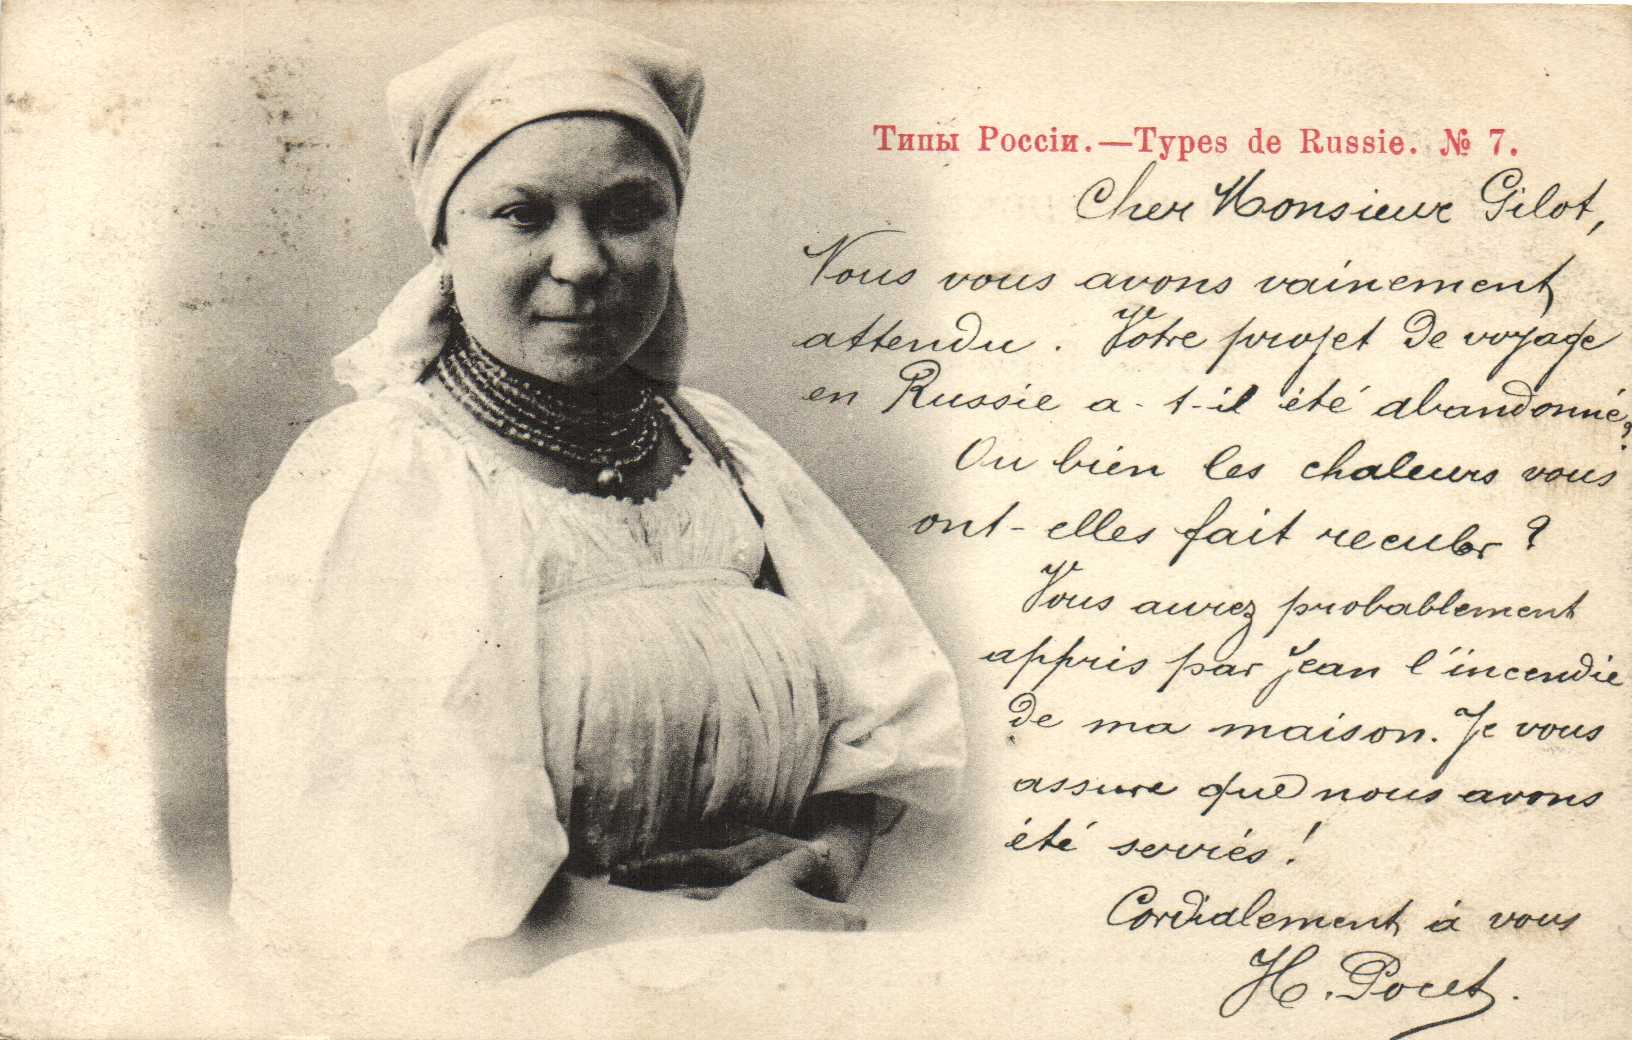 Типы Россіи.—Types de Russie. № 7.
Cher Monsieur Gilot,
Nous vous avons vainement
attendu. Votre projet de voyage
en Russie a-t-il été abandonné?
Ou bien les chaleurs vous
ont-elles fait reculer?
Vous aurez probablement
appris par Jean l'incendie
de ma maison. Je vous
assure que nous avons
été servies!
Cordialement à vous
H. Pocet.